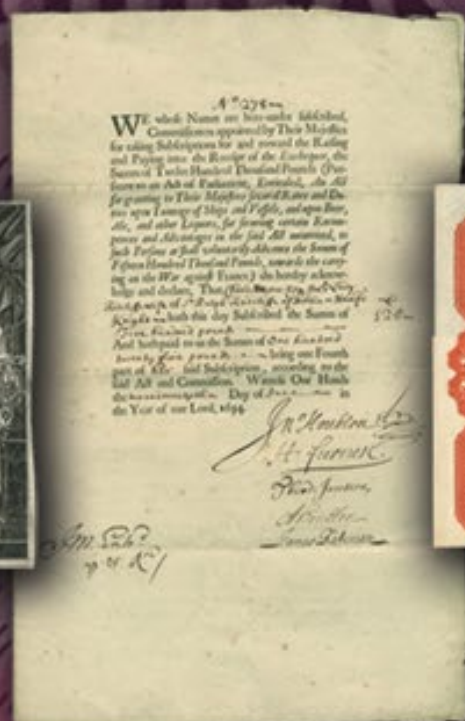 No 278
WE whose Names are here-under subscribed,
Commissioners appointed by Their Majesties
for taking Subscriptions for and toward the Raising
and Paying into the Receipt of the Exchequer, the
Summ of Twelve Hundred Thousand Pounds (Pur-
suant to an Act of Parliament, Entituled, An Act
for granting to Their Majesties several Rates and Du-
ties upon Tunnage of Ships and Vessels, and upon Beer,
Ale, and other Liquors, for securing certain Recom-
pences and Advantages in the said Act mentioned, to
such Persons as shall voluntarily Advance the Summ of
Fifteen Hundred Thousand Pounds, towards the carry-
ing on the War against France) do hereby acknow-
ledge and declare, That
Knight hath this day Subscribed the Summ of
Five hundred pounds
And hath paid to us the Summ of One hundred
twenty five pounds being one Fourth
part of her said Subscription, according to the
said Act and Commission. Witness Our Hands
the Day of June in
the Year of our Lord, 1694.
Jno Houblon
James Bateman